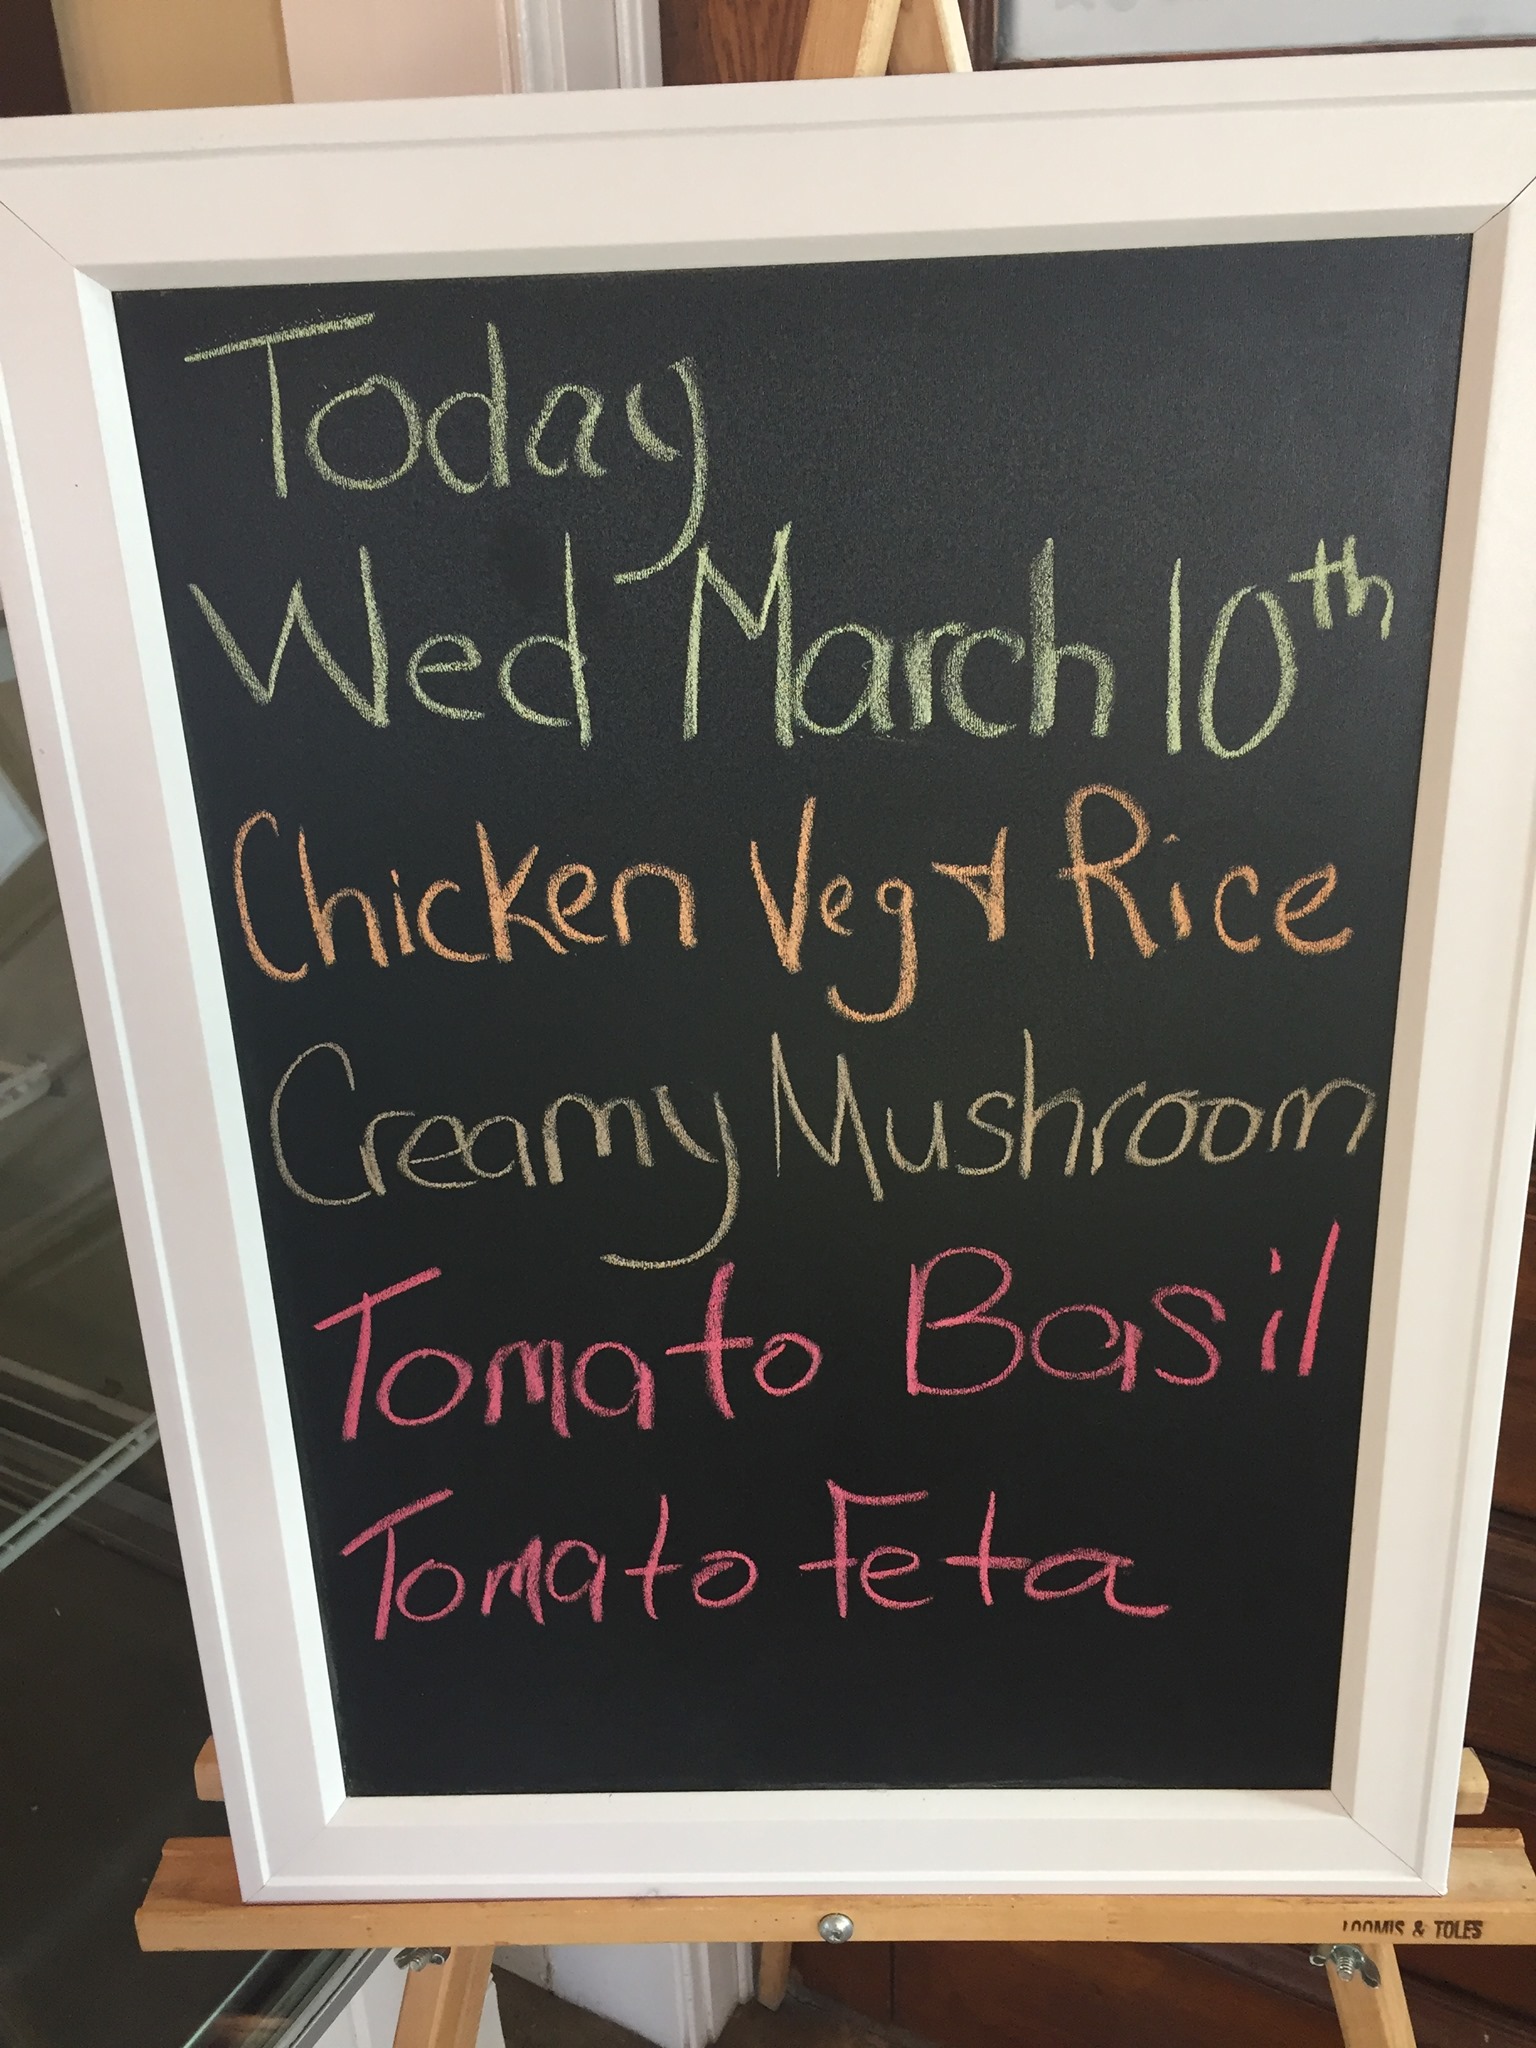 Today
Wed March 10th
Chicken Veg & Rice
Creamy Mushroom
Tomato Basil
Tomato Feta
LOOMIS & TOLES